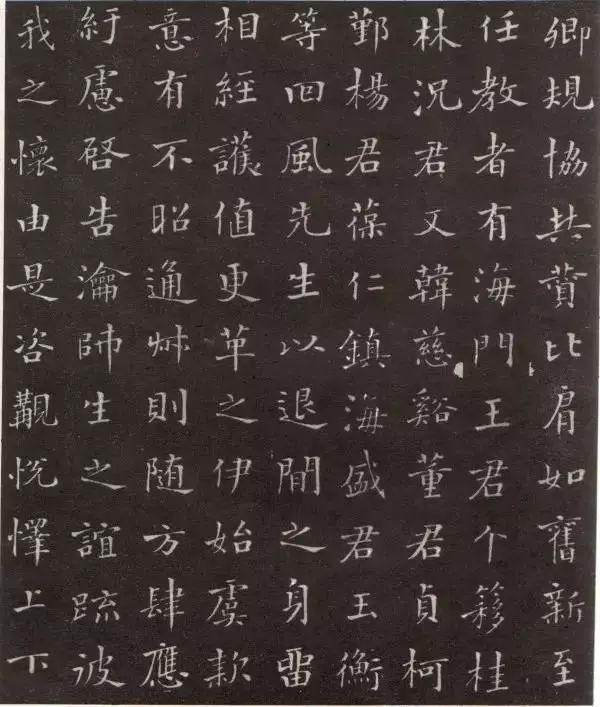 卿規協共贊比肩如舊新至
任教者有海門王君个簃桂
林況君又韓慈谿董君貞柯
鄞楊君葆仁鎮海盛君玉衡
等回風先生以退閒之身畱
相經護值更革之伊始虞款
意有不昭通則随方肆應
紆慮啓告瀹師生之誼疏彼
我之懷由是咨覯悦懌上下